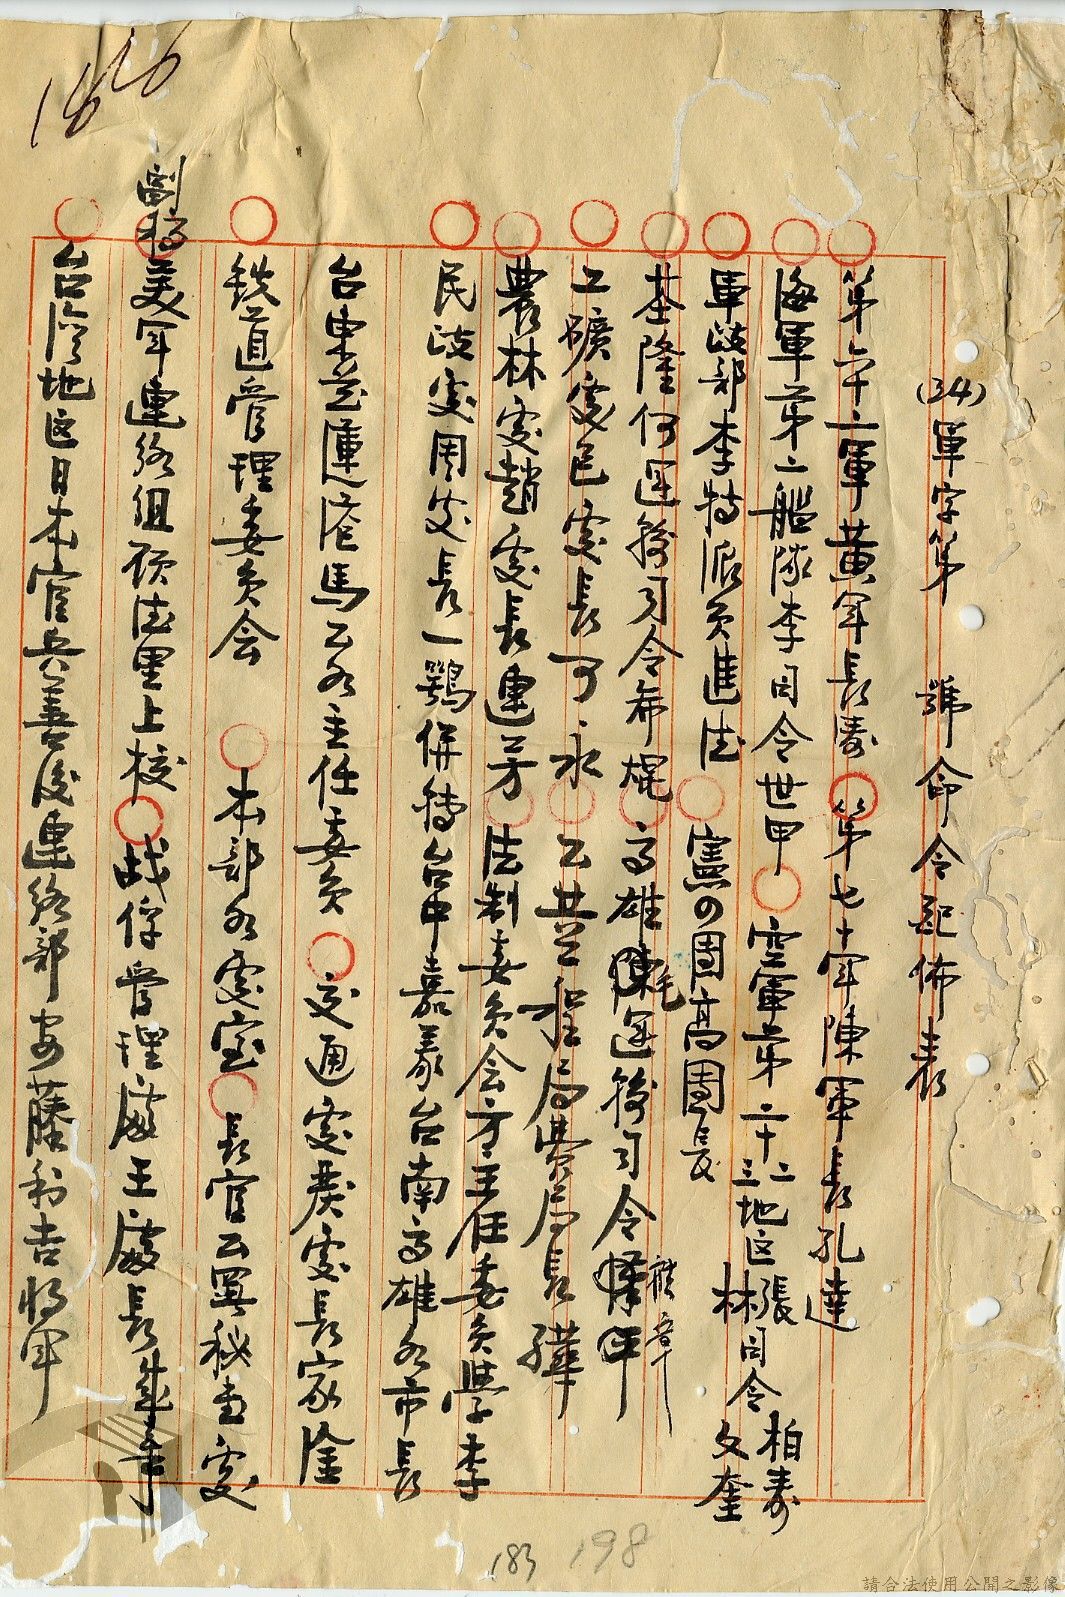 1826
(34)軍字第　　號命令起佈表
第六十二軍黃軍長濤　第七十軍陳軍長孔達
海軍第二艦隊李司令世甲　空軍第二十二三地区張林司令柏壽文奎
軍政部李特派員進德　憲四團高團長
基隆何運輸司令希琨　高雄陳莊運輸司令
維章
工礦處包處長可永　公共工程局費局長驊
農林處趙處長連芳　法制委員会方主任委員學李
民政處周處長一鶚併轉台中嘉義台南高雄各市長
台東花蓮港馬公各主任委員　交通處嚴處長家淦
鉄道管理委員会　本部各處室　長官公署秘書處
副稿美軍連絡組顾德里上校　战俘管理處王處長成章
台灣地区日本官兵善後連絡部安藤利吉將軍
183
198
請合法使用公開之影像